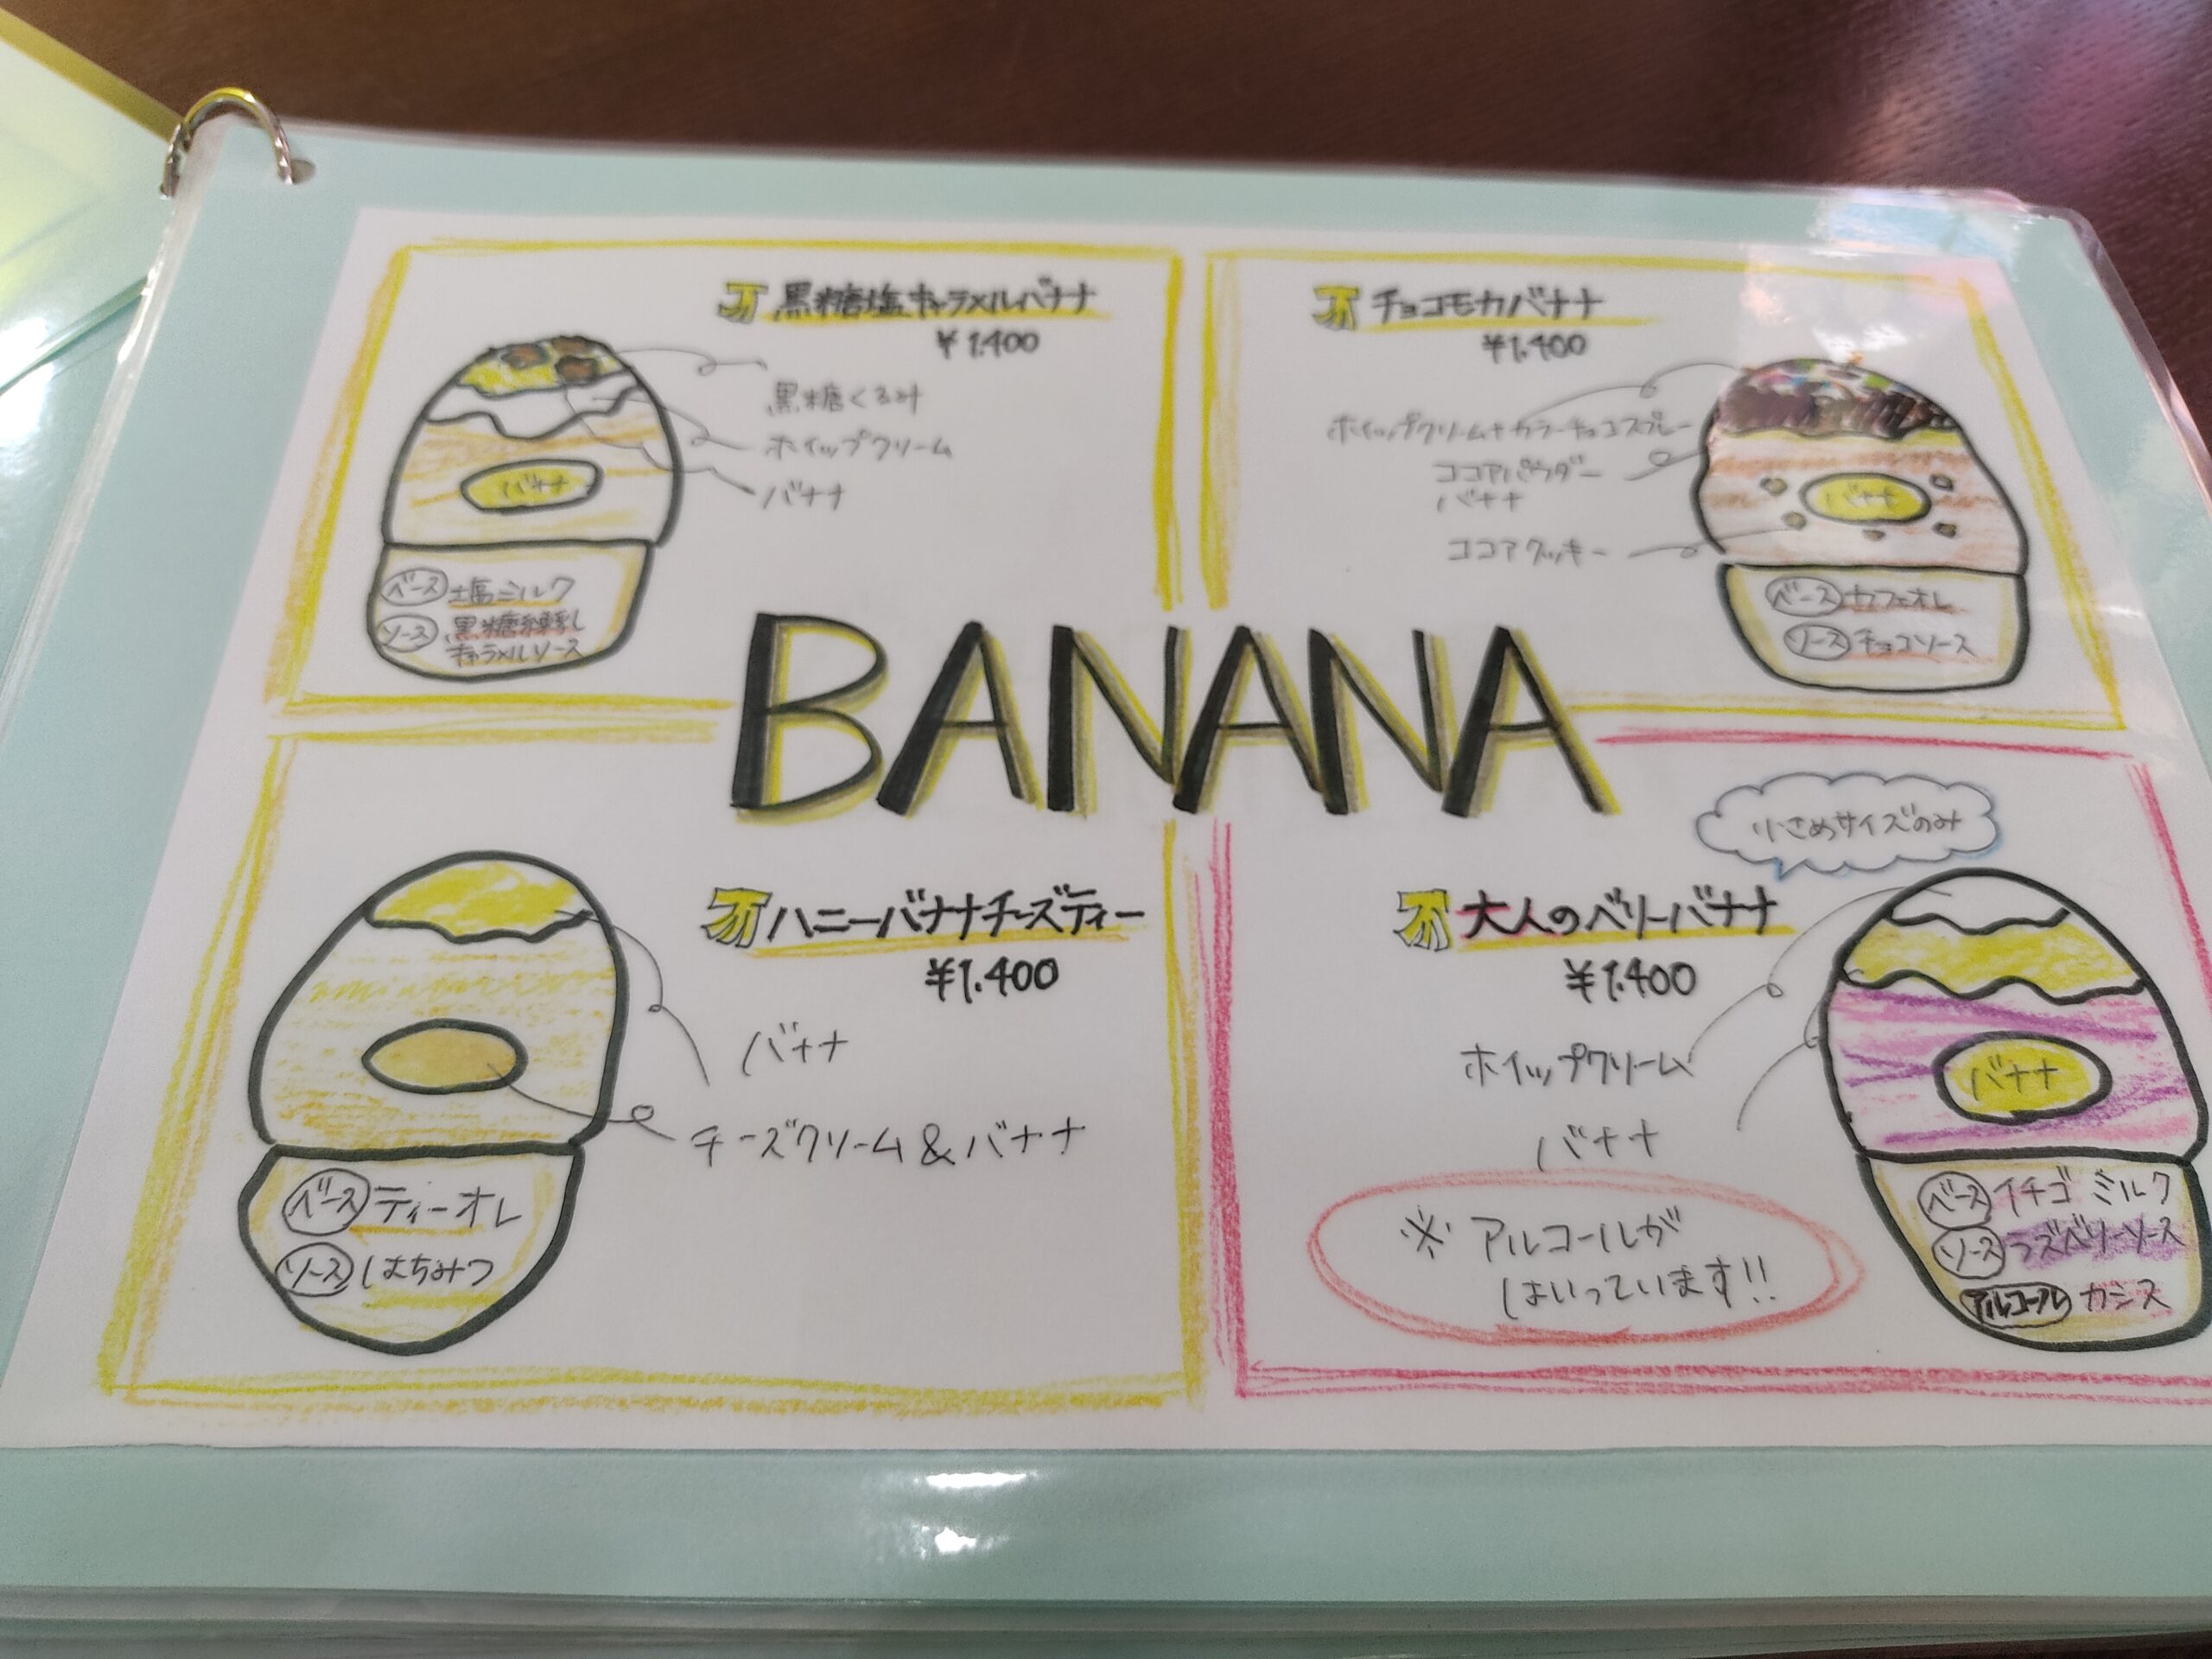 黒糖塩キャラメルバナナ
¥1.400
黒糖くるみ
ホイップクリーム
バナナ
バナナ
ベース 塩ミルク
ソース 黒糖練乳
キャラメルソース
チョコモカバナナ
¥1.400
ホイップクリーム+カラーチョコスプレー
ココアパウダー
バナナ
ココアクッキー
バナナ
ベース カフェオレ
ソース チョコソース
BANANA
ハニーバナナチーズティー
¥1.400
バナナ
チーズクリーム&バナナ
ベース ティーオレ
ソース はちみつ
小さめサイズのみ
大人のベリーバナナ
¥1.400
ホイップクリーム
バナナ
バナナ
※アルコールが
はいっています!!
ベース イチゴミルク
ソース ラズベリーソース
アルコール カシス